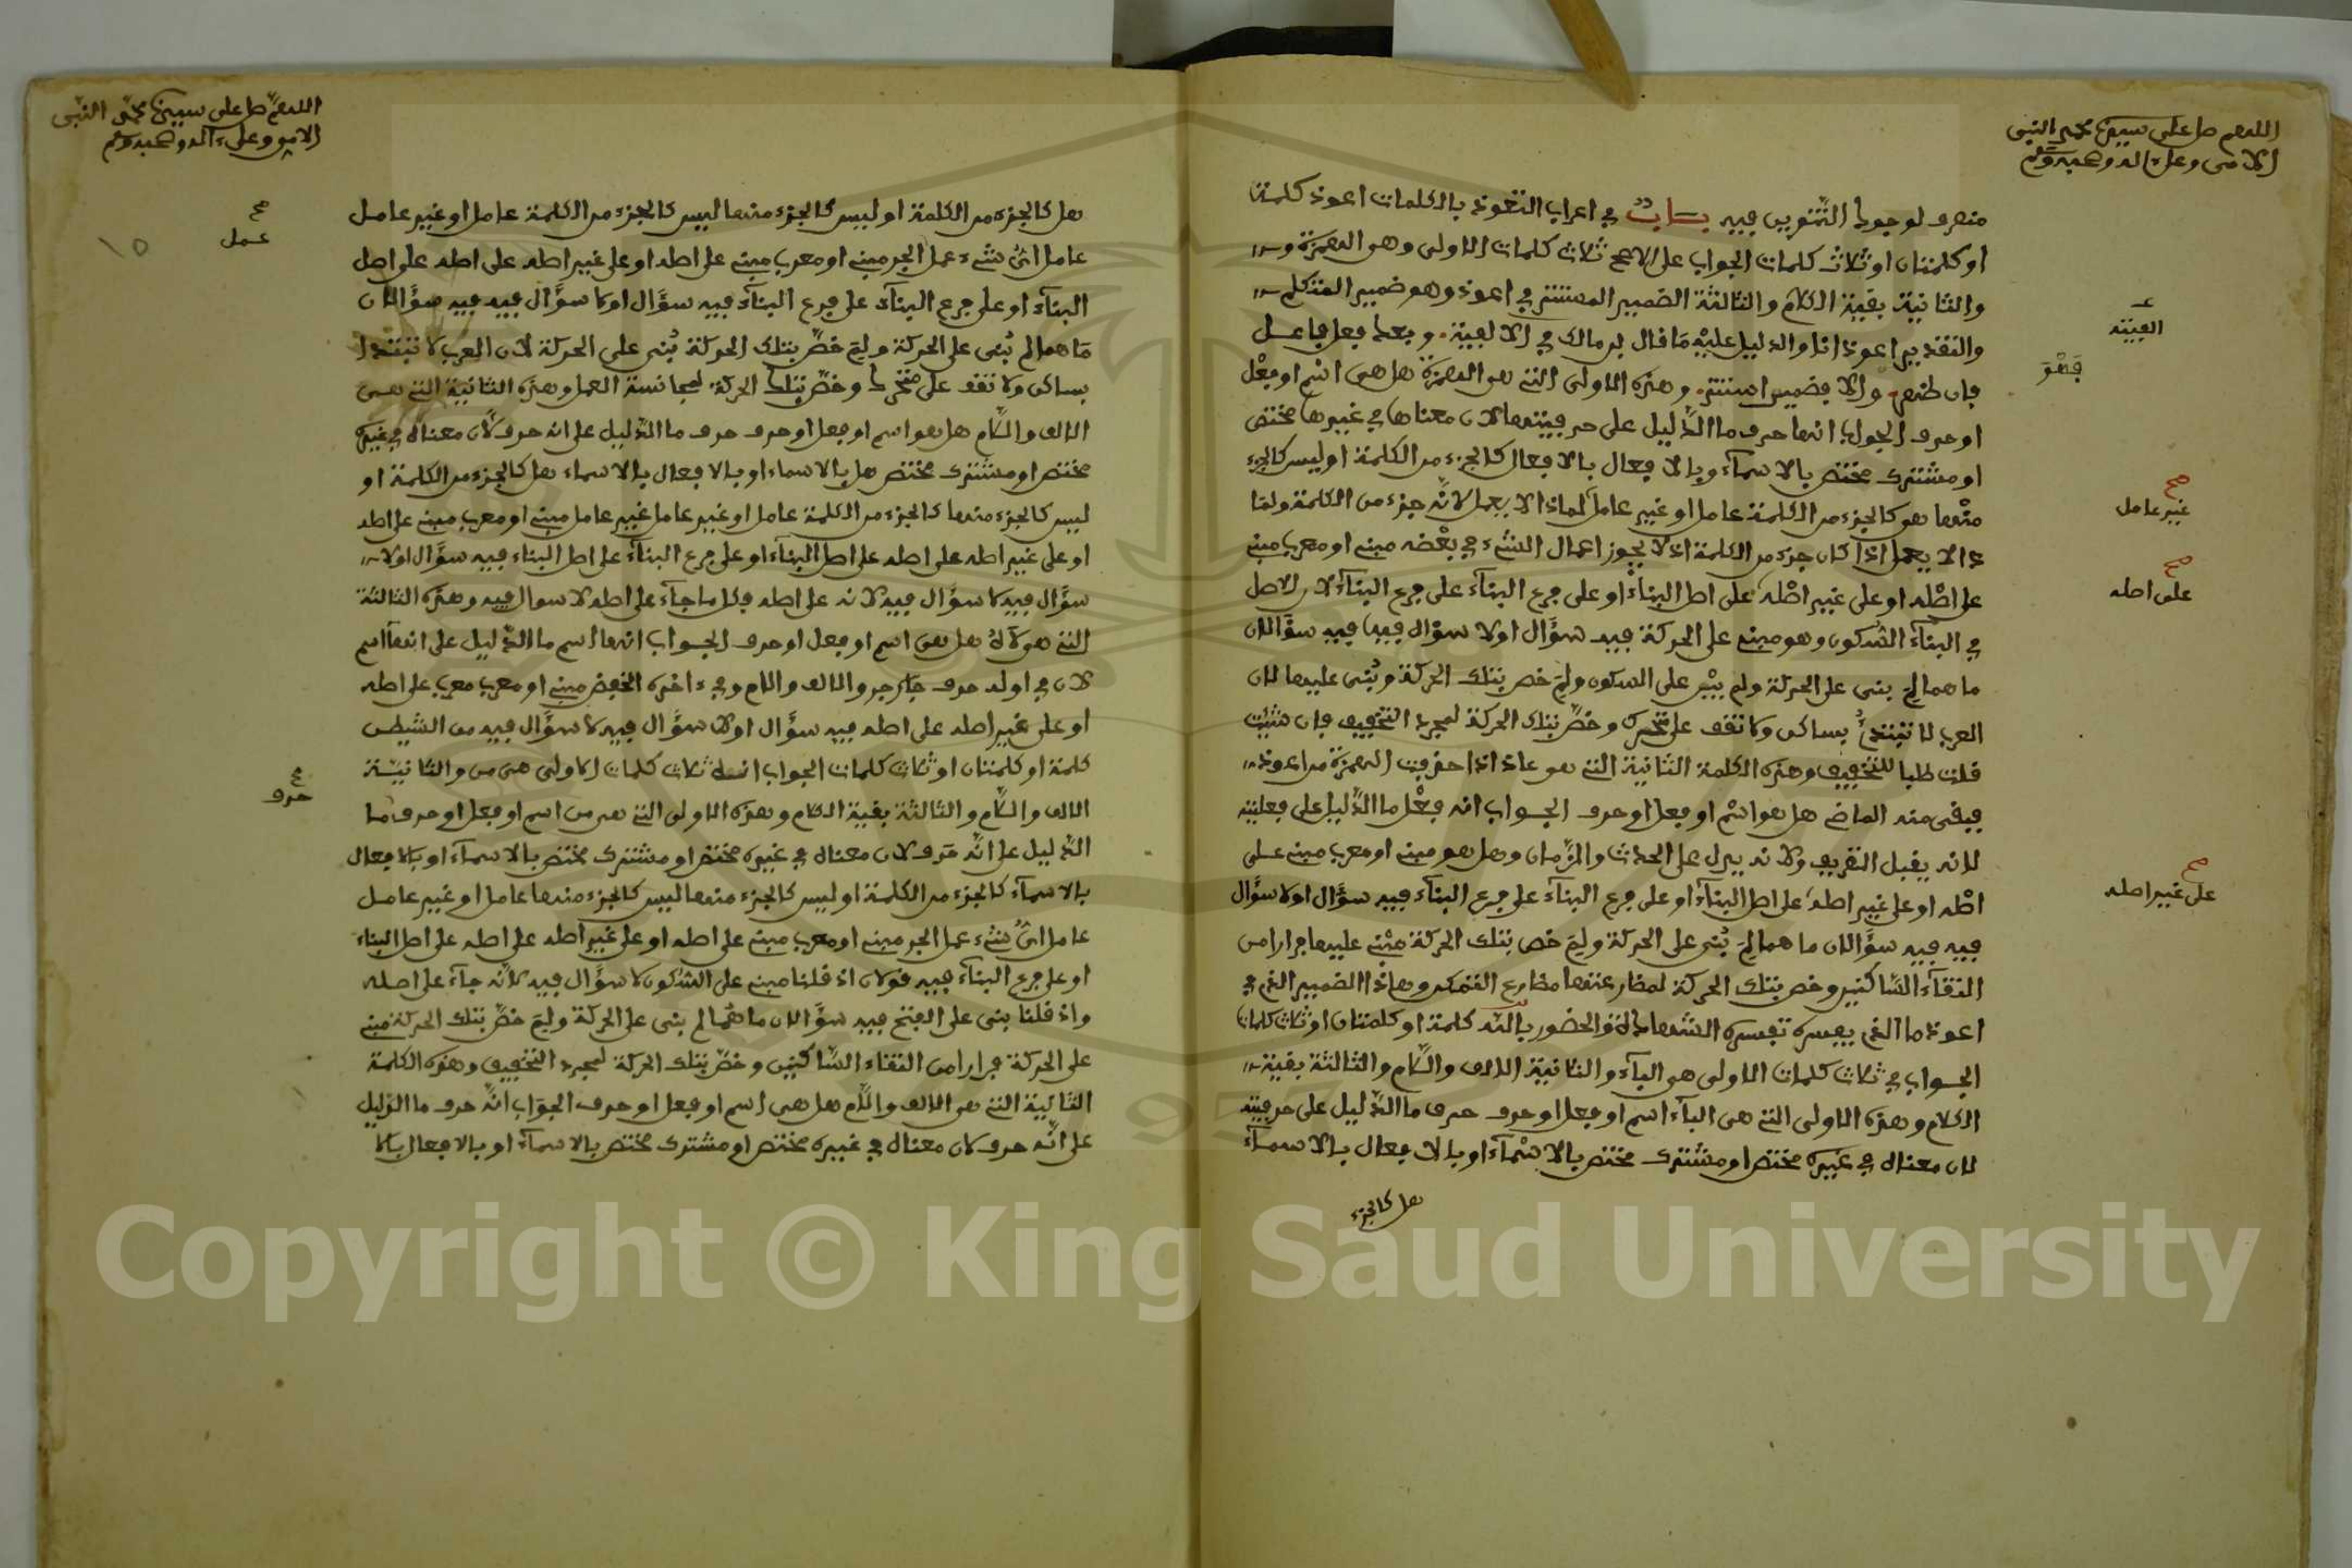 اللهم صل على سيدنا محمد النبي
الامي وعلى اله وصحبه وسلم
منصرف لوجود التنوين فيه بــاب في اعراب التعوذ بالكلمات اعوذ كلمة
او كلمتان او ثلاث كلمات الجواب على الاصح ثلاث كلمات الاولى وهو الهمزة و
والثانية بقية الكلام والثالثة الضمير المستتر في اعوذ وهو ضمير المتكلم
والتقدير اعوذ انا والدليل عليه ما قال بن مالك في الالفية وبعد فعل فاعل
فان ظهر فهو والا فضمير استتر وهذه الاولى التي هي الهمزة هل هي اسم او فعل
او حرف الجواب انها حرف ما الدليل على حرفيتها لان معناها في غيرها مختص
او مشترك مختص بالاسماء وبالافعال بالافعال كالجزء من الكلمة او ليس كالجزء
منها هو كالجزء من الكلمة عامل او غير عامل لماذا لا يعمل لانه جزء من الكلمة ولما
ذا لا يعمل اذا كان جزء من الكلمة اذ لا يجوز اعمال الشيء في بعضه مبني او معرب مبني
على اصله او على غير اصله على اصل البناء او على فرع البناء على فرع البناء لان الاصل
في البناء السكون وهو مبني على الحركة فيه سؤال او لا سؤال فيه فيه سؤالان
ما هما لم بني على الحركة ولم يبن على السكون ولم خص بتلك الحركة وبني عليها لان
العرب لا تبتدئ بساكن ولا تقف على متحرك وخص بتلك الحركة لمجرد التخفيف فان شئت
قلت طلبا للتخفيف وهذه الكلمة الثانية التي هو عاذ اذا حذفت الهمزة من اعوذ
فبقي منه الماضي هل هو اسم او فعل او حرف الجواب انه فعل ما الدليل على فعليته
لانه يقبل التعريف ولانه يدل على الحدث والزمان وهل هو مبني او معرب مبني على
اصله او على غير اصله على اصل البناء او على فرع البناء على فرع البناء فيه سؤال او لا سؤال
فيه فيه سؤالان ما هما لم بني على الحركة ولم خص بتلك الحركة مبني عليها فرارا من
التقاء الساكنين وخص بتلك الحركة
اعوذ ما الذي يفسره تفسره المشاهدة والحضور بالله كلمة او كلمتان او ثلاث كلمات
الجواب في ثلاث كلمات الاولى هو الباء والثانية الالف واللام والثالثة بقية
الكلام وهذه الاولى التي هي الباء اسم او فعل او حرف حرف ما الدليل على حرفيته
لان معناه في غيره مختص او مشترك مختص بالاسماء او بالافعال بالاسماء
هل كالجزء
العينة
فهو
صح
غير عامل
صح
على اصله
صح
على غير اصله
اللهم صل على سيدنا محمد النبي
الامي وعلى اله وصحبه وسلم
هل كالجزء من الكلمة او ليس كالجزء منها ليس كالجزء من الكلمة عامل او غير عامل
عامل اي شيء عمل الجر مبني او معرب مبني على اصله او على غير اصله على اصله على اصل
البناء او على فرع البناء على فرع البناء فيه سؤال او لا سؤال فيه فيه سؤالان
ما هما لم بني على الحركة ولم خص بتلك الحركة بني على الحركة لان العرب لا تبتدا
بساكن ولا تقف على متحرك وخص بتلك الحركة لمجانسة العمل وهذه الثانية التي هي
الالف واللام هل هو اسم او فعل او حرف حرف ما الدليل على انه حرف لان معناه في غيره
مختص او مشترك مختص هل بالاسماء او بالافعال بالاسماء هل كالجزء من الكلمة او
ليس كالجزء منها كالجزء من الكلمة عامل او غير عامل غير عامل مبني او معرب مبني على اصله
او على غير اصله على اصله على اصل البناء او على فرع البناء على اصل البناء فيه سؤال او لا
سؤال فيه لا سؤال فيه لانه على اصله وكلما جاء على اصله لا سوال فيه وهذه الثالثة
التي هو لاه هل هي اسم او فعل او حرف الجواب انها اسم ما الدليل على انها اسم
لان في اوله حرف جار جر والالف واللام وفي ءاخره الخفض مبني او معرب معرب على اصله
او على غير اصله على اصله فيه سؤال او لا سؤال فيه لا سؤال فيه من الشيطن
كلمة او كلمتان او ثلاث كلمات الجواب انه ثلاث كلمات الاولى هي من والثانية
الالف واللام والثالثة بقية الكلام وهذه الاولى التي هي من اسم او فعل او حرف ما
الدليل على انه حرف لان معناه في غيره مختص او مشترك مختص بالاسماء او بالافعال
بالاسماء كالجزء من الكلمة او ليس كالجزء منها ليس كالجزء منها عامل او غير عامل
عامل اي شيء عمل الجر مبني او معرب مبني على اصله او على غير اصله على اصله على اصل البناء
او على فرع البناء فيه قولان اذ قلنا مبني على السكون لا سؤال فيه لانه جاء على اصله
واذ قلنا بني على الفتح فيه سؤالان ما هما لم بني على الحركة ولم خص بتلك الحركة مبني
على الحركة فرارا من التقاء الساكنين وخص بتلك الحركة لمجرد التخفيف وهذه الكلمة
الثانية التي هو الالف واللام هل هي اسم او فعل او حرف الجواب انه حرف ما الدليل
على انه حرف لان معناه في غيره مختص او مشترك مختص بالاسماء او بالافعال بالا
صح
عمل
١٥
صح
حرف
Copyright © King Saud University